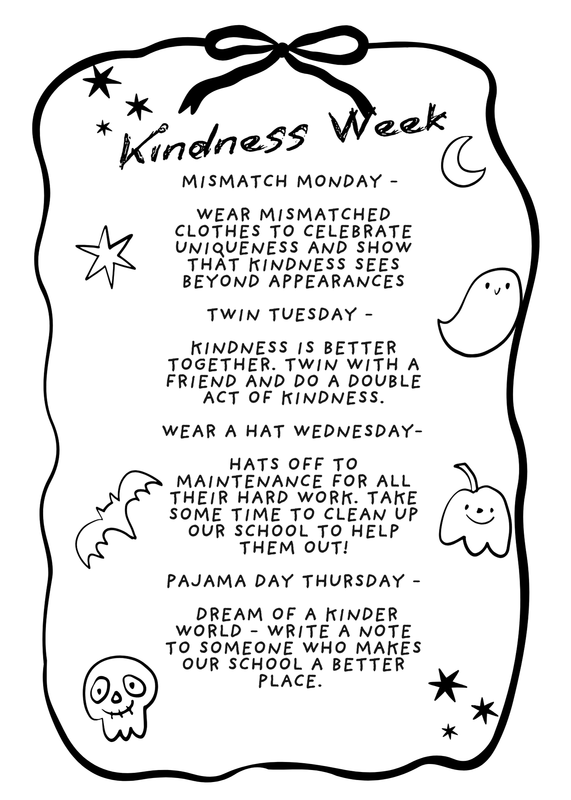 Kindness Week
MISMATCH MONDAY -
WEAR MISMATCHED
CLOTHES TO CELEBRATE
UNIQUENESS AND SHOW
THAT KINDNESS SEES
BEYOND APPEARANCES
TWIN TUESDAY -
KINDNESS IS BETTER
TOGETHER. TWIN WITH A
FRIEND AND DO A DOUBLE
ACT OF KINDNESS.
WEAR A HAT WEDNESDAY-
HATS OFF TO
MAINTENANCE FOR ALL
THEIR HARD WORK. TAKE
SOME TIME TO CLEAN UP
OUR SCHOOL TO HELP
THEM OUT!
PAJAMA DAY THURSDAY -
DREAM OF A KINDER
WORLD - WRITE A NOTE
TO SOMEONE WHO MAKES
OUR SCHOOL A BETTER
PLACE.